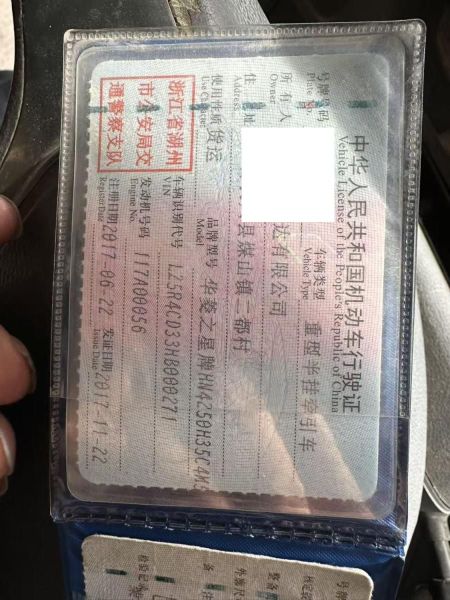 中华人民共和国机动车行驶证
Vehicle License of the People's Republic of China
号牌号码
Plate No.
车辆类型 重型半挂牵引车
Vehicle Type
所有人 达有限公司
Owner
住址 县煤山镇三都村
Address
使用性质 货运
Use Character
品牌型号 华菱之星牌HN4C50H35C4M3
Model
浙江省湖州
市公安局交
通警察支队
车辆识别代号 LZ5R4CD33HB000271
VIN
发动机号码 117A00036
Engine No.
注册日期 2017-06-22
Register Date
发证日期 2017-11-22
Issue Date